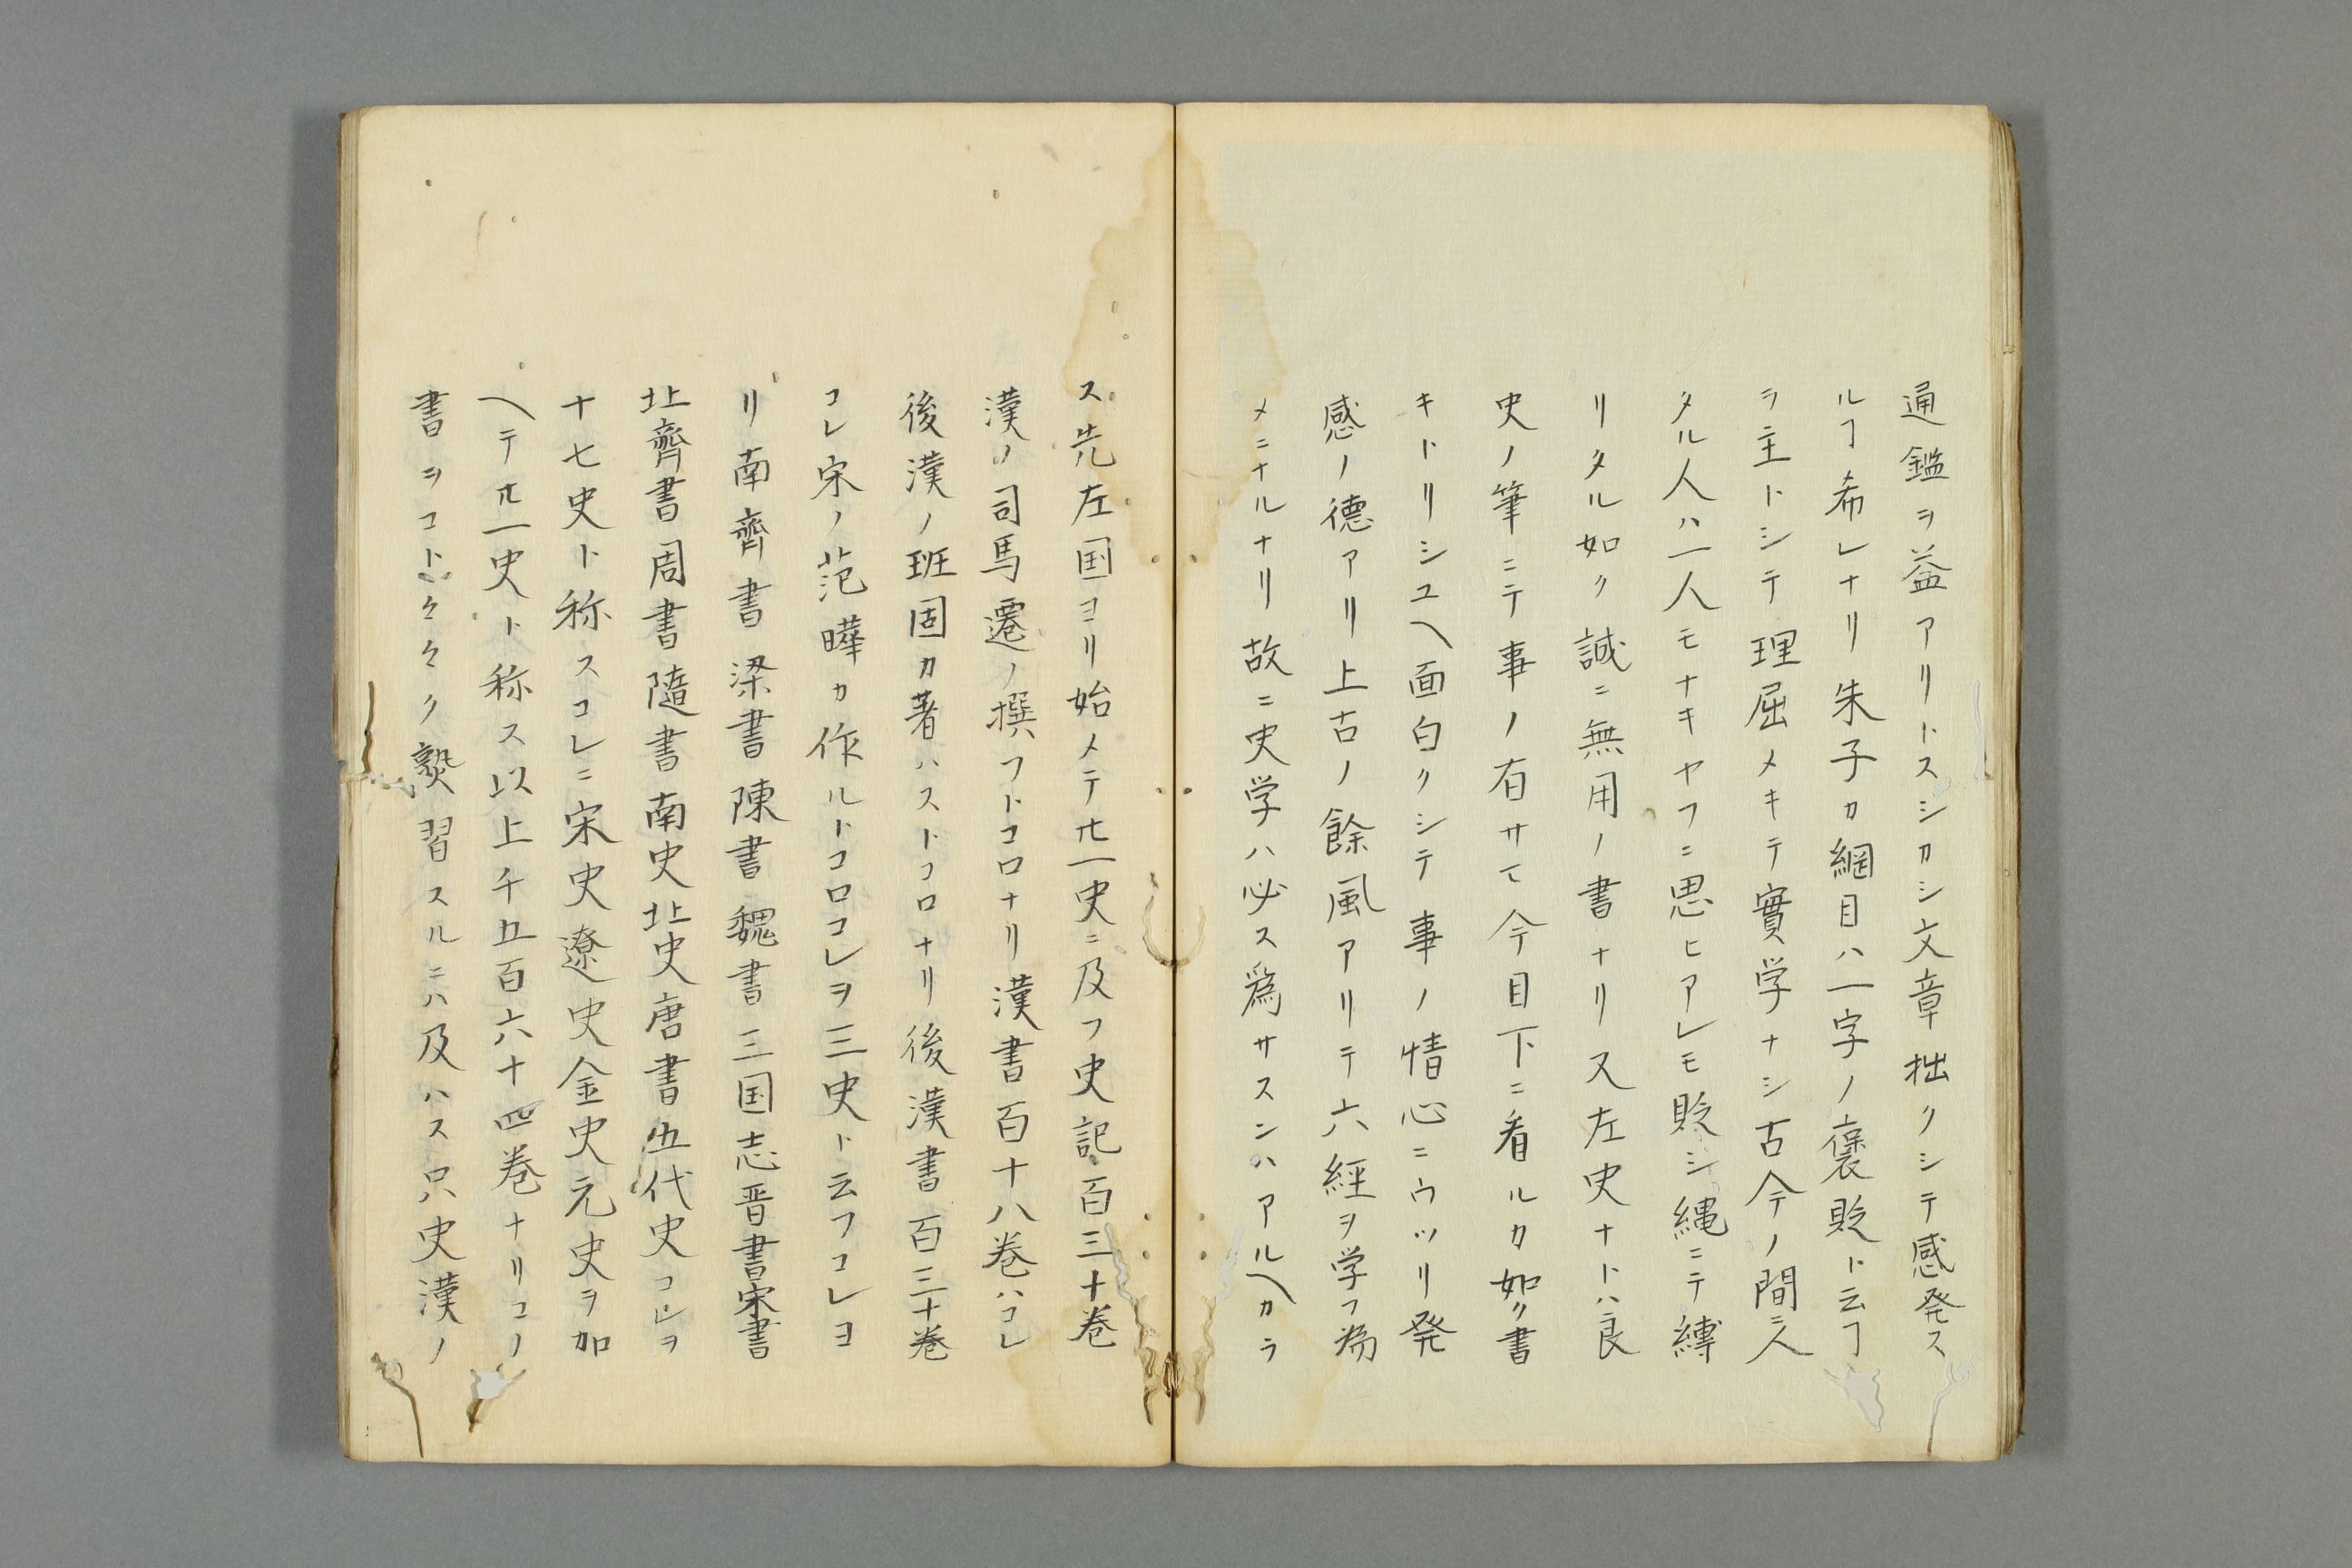 通鑑ヲ益アリトスシカシ文章拙クシテ感発ス
ルヿ希レナリ朱子カ綱目ハ一字ノ褒貶ト云ヿ
ヲ主トシテ理屈メキテ實学ナシ古今ノ間ニ人
タル人ハ一人モナキヤフニ思ヒアレモ貶シ縄ニテ縛
リタル如ク誠ニ無用ノ書ナリ又左史ナトハ良
史ノ筆ニテ事ノ有サマ今目下ニ看ルカ如ク書
キトリシユヘ面白クシテ事ノ情心ニウツリ発
感ノ德アリ上古ノ餘風アリテ六經ヲ学フ為
メニナルナリ故ニ史学ハ必ス爲サスンハアルヘカラ
ス先左国ヨリ始メテ廿一史ニ及フ史記百三十巻
漢ノ司馬遷ノ撰フトコロナリ漢書百十八巻ハコレ
後漢ノ班固カ著ハストコロナリ後漢書百三十巻
コレ宋ノ范曄カ作ルトコロコレヲ三史ト云フコレヨ
リ南齊書梁書陳書魏書三国志晋書宋書
北齊書周書隨書南史北史唐書五代史コレヲ
十七史ト称スコレニ宋史遼史金史元史ヲ加
ヘテ廿一史ト称ス以上千五百六十四巻ナリコノ
書ヲコトクククク熟習スルニハ及ハス只史漢ノ